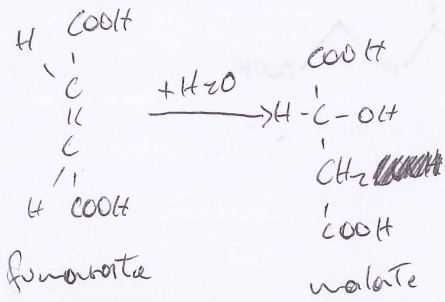 H COOH
C
C
H COOH
fumarate
+ H2O
COOH
H - C - OH
CH2
COOH
malate